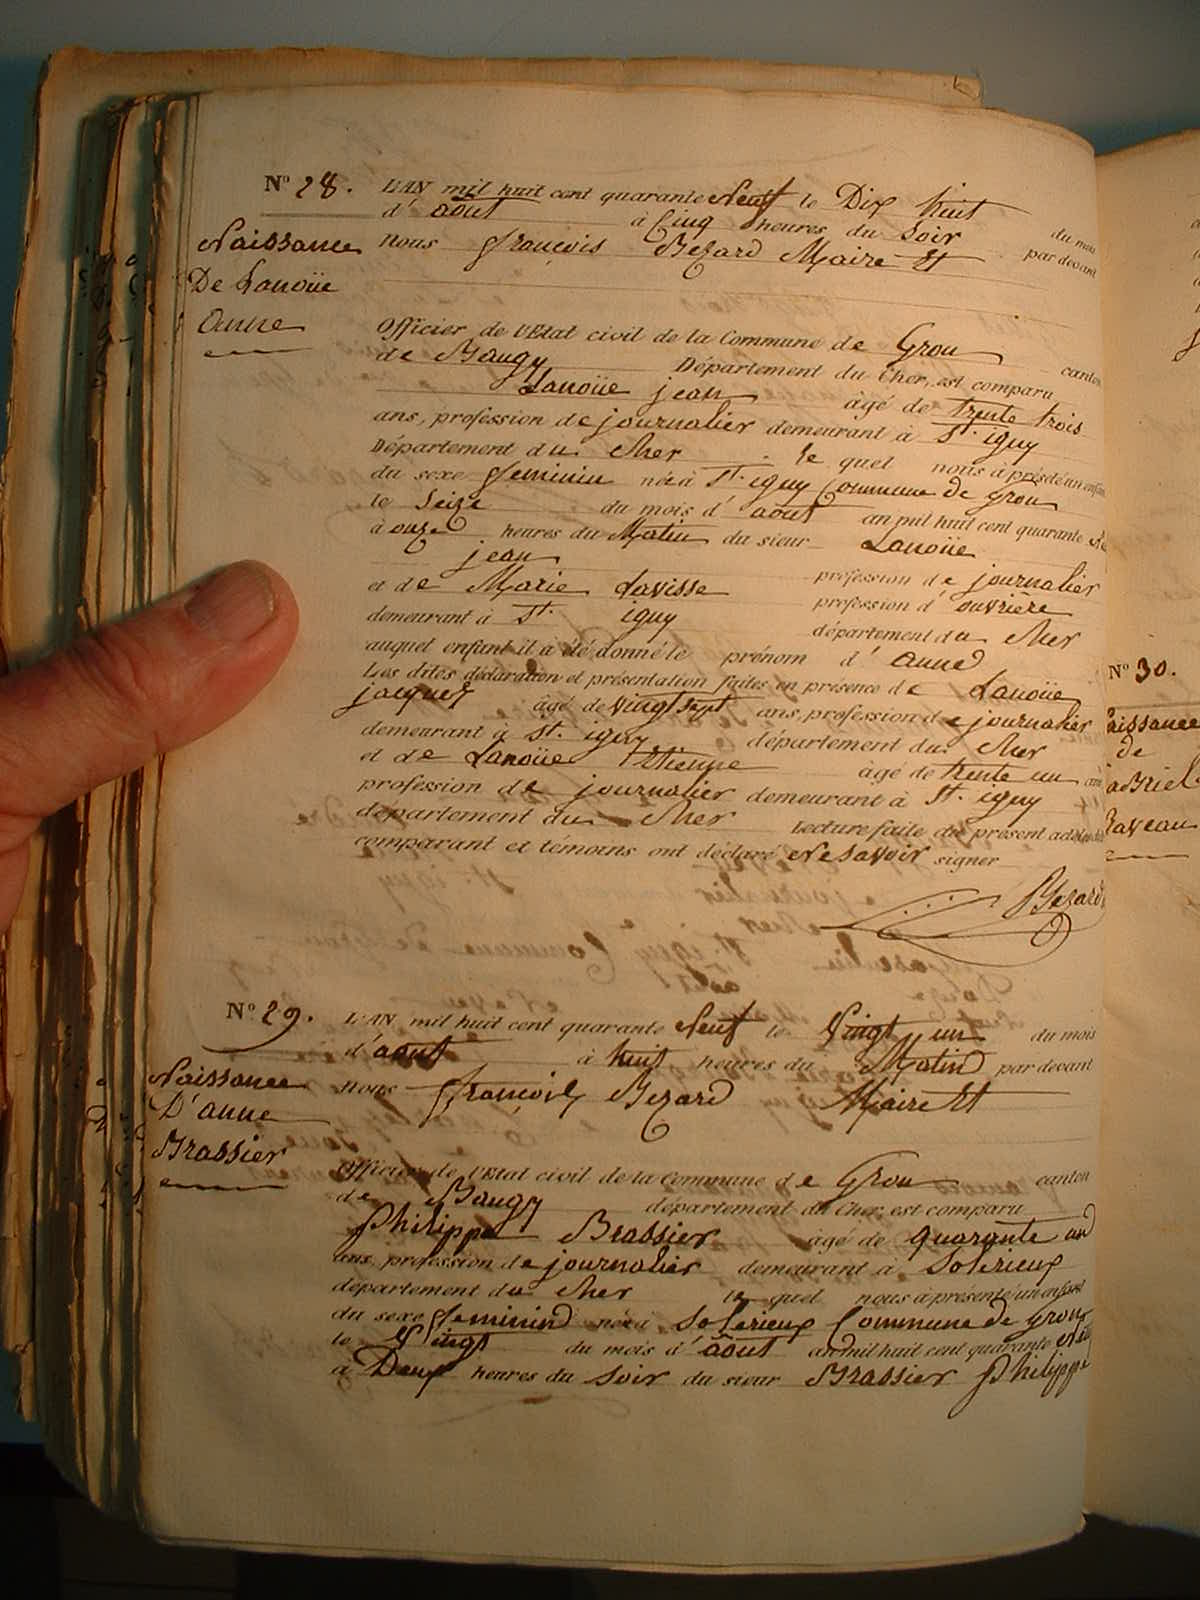 N° 28.
Naissance
De Lanoüe
Anne
L'AN mil huit cent quarante Neuf le Dix huit du mois
d' août à Cinq heures du Soir par devant
Nous François Bezard Maire Et
Officier de l'Etat civil de la Commune de Grou canton
de Baugy Département du Cher, est comparu
Lanoüe jean âgé de trente trois
ans, profession de journalier demeurant à St. iguy
Département du Cher le quel nous à présenté un enfant
du sexe feminin né à St. iguy Commune de Grou
le Seize du mois d' août an mil huit cent quarante
à onze heures du Matin du sieur Lanoüe
jean profession de journalier
et de Marie Lavisse profession d' ouvrière
demeurant à St. iguy département du Cher
auquel enfant il à été donné le prénom d' anne
Les dites déclaration et présentation faites en présence de Lanoüe
jacques âgé de vingt sept ans, profession de journalier
demeurant à St. iguy département du Cher
et de Lanoüe Etienne âgé de trente un ans
profession de journalier demeurant à St. iguy
département du Cher Lecture faite du présent acte
comparant et témoins ont déclaré Ne Savoir signer
Bezard
N° 29.
Naissance
D'anne
Brassier
L'AN mil huit cent quarante Neuf le Vingt un du mois
d' août à huit heures du Matin par devant
Nous François Bezard Maire Et
Officier de l'Etat civil de la Commune de Grou canton
de Baugy département du Cher, est comparu
Philippe Brassier âgé de quarante un
ans, profession de journalier demeurant à Solérieux
département du Cher le quel nous à présenté un enfant
du sexe feminin né à Solérieux Commune de Grou
le Vingt du mois d' août an mil huit cent quarante
à Deux heures du Soir du sieur Brassier Philippe
N° 30.
aissance
de
abriel
Raveau